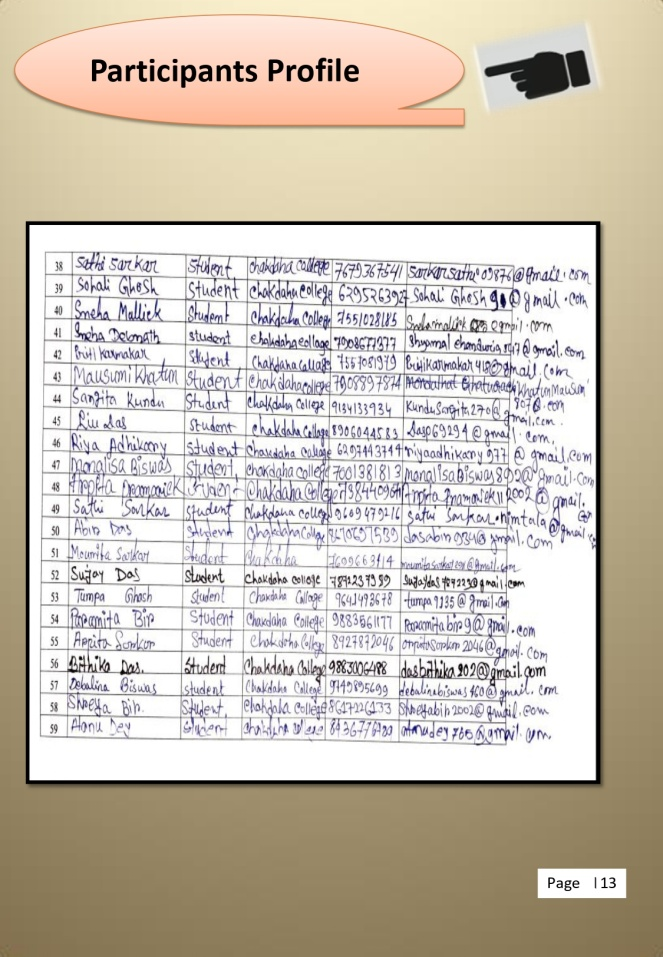 Participants Profile
38 Sathi Sarkar Student Chakdaha College 7679367541 sarkarsathi09876@gmail.com
39 Sohali Ghosh Student Chakdaha College Sohali Ghosh 91@gmail.com
40 Sneha Mallick Student Chakdaha College 7551028185
41 Sneha Debnath student chakdaha college 7908677377 @gmail.com
42 Priti Karmakar Student Chakdaha College 7557081979 Pritikarmakar418@gmail.com
43 Mausumi Khatun Student Chakdaha college 7908897874
44 Sangita Kundu Student Chakdaha College 9134133934 KunduSangita270@gmail.com.
45 Riu das Student Chakdaha College 8906044583 dasp69294@gmail.com.
46 Riya Adhikary student Chakdaha College 6297443744 riyaadhikary977@gmail.com
47 Monalisa Biswas Student, chakdaha college 7001381813 monalisabiswas802@gmail.com
48 Arpita Pramanick Student Chakdaha College Arpita Pramanick112002@gmail.com
49 Sathi Sarkar student Chakdaha college 9609479216 sathi Sarkar.nimtala@gmail.com
50 Abir Das Student Chakdaha College
51 Moumita Sarkar Student Chakdaha 7609663114
52 Sujoy Das Student Chakdaha College 7872237959 Sujoydas787223@gmail.com
53 Tumpa Ghosh Student Chakdaha College 9641493678 tumpa9135@gmail.com
54 Paramita Bir Student Chakdaha College 9883561177 Paramitabir9@gmail.com
55 Arpita Sarkar Student Chakdaha College 8927872046 arpitasarkar2046@gmail.com
56 Bithika Das. Student Chakdaha College 9883006488 dasbithika202@gmail.com
57 Debalina Biswas student Chakdaha College 9749895699 debalinabiswas460@gmail.com
58 Shreya Bir. Student, Chakdaha College 8617226133 Shreyabir2002@gmail.com
59 Atanu Dey Student Chakdaha College atanudey765@gmail.com.
Page |13